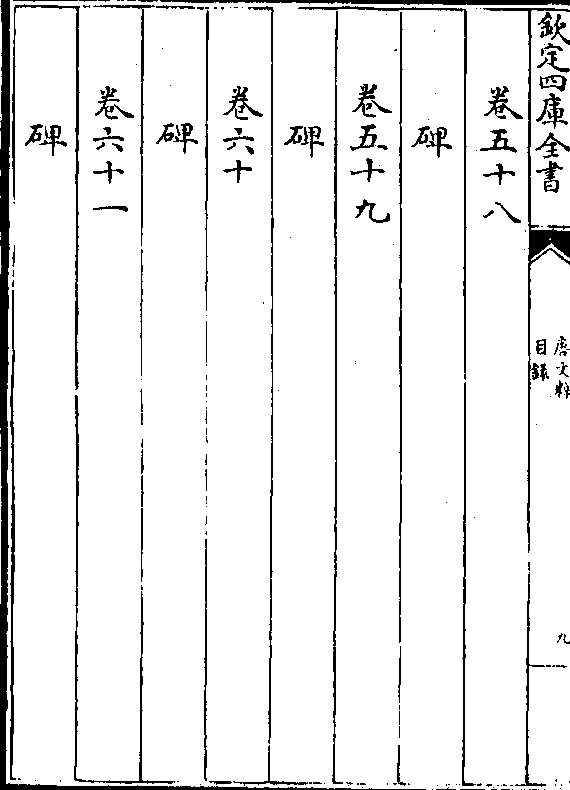 欽定四庫全書
唐文粹
目録
九
卷五十八
碑
卷五十九
碑
卷六十
碑
卷六十一
碑